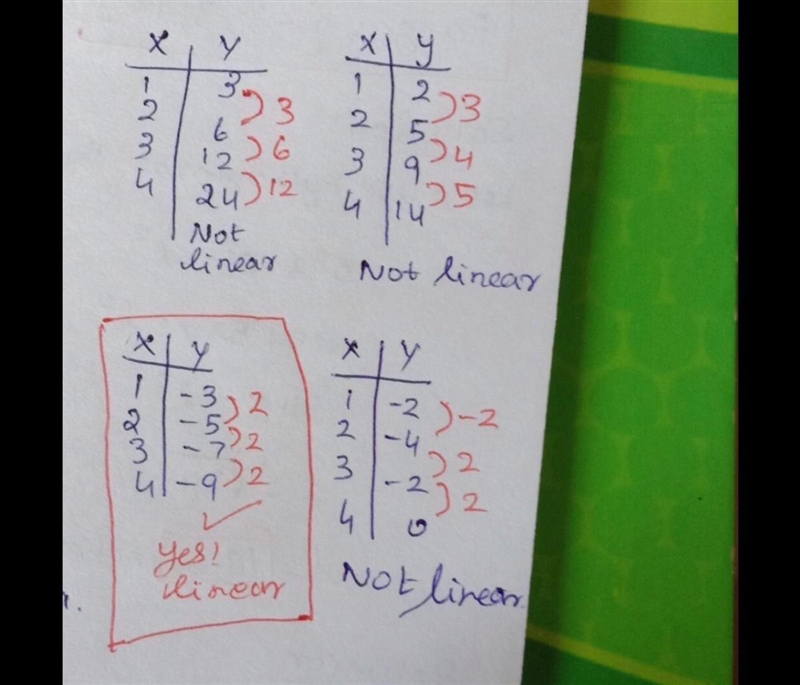 X Y
1 3
2 6
3 12
4 24
3
6
12
Not
linear
X Y
1 2
2 5
3 9
4 14
3
4
5
Not linear
X Y
1 -3
2 -5
3 -7
4 -9
2
2
2
Yes!
linear
X Y
1 -2
2 -4
3 -2
4 0
-2
2
2
Not linear